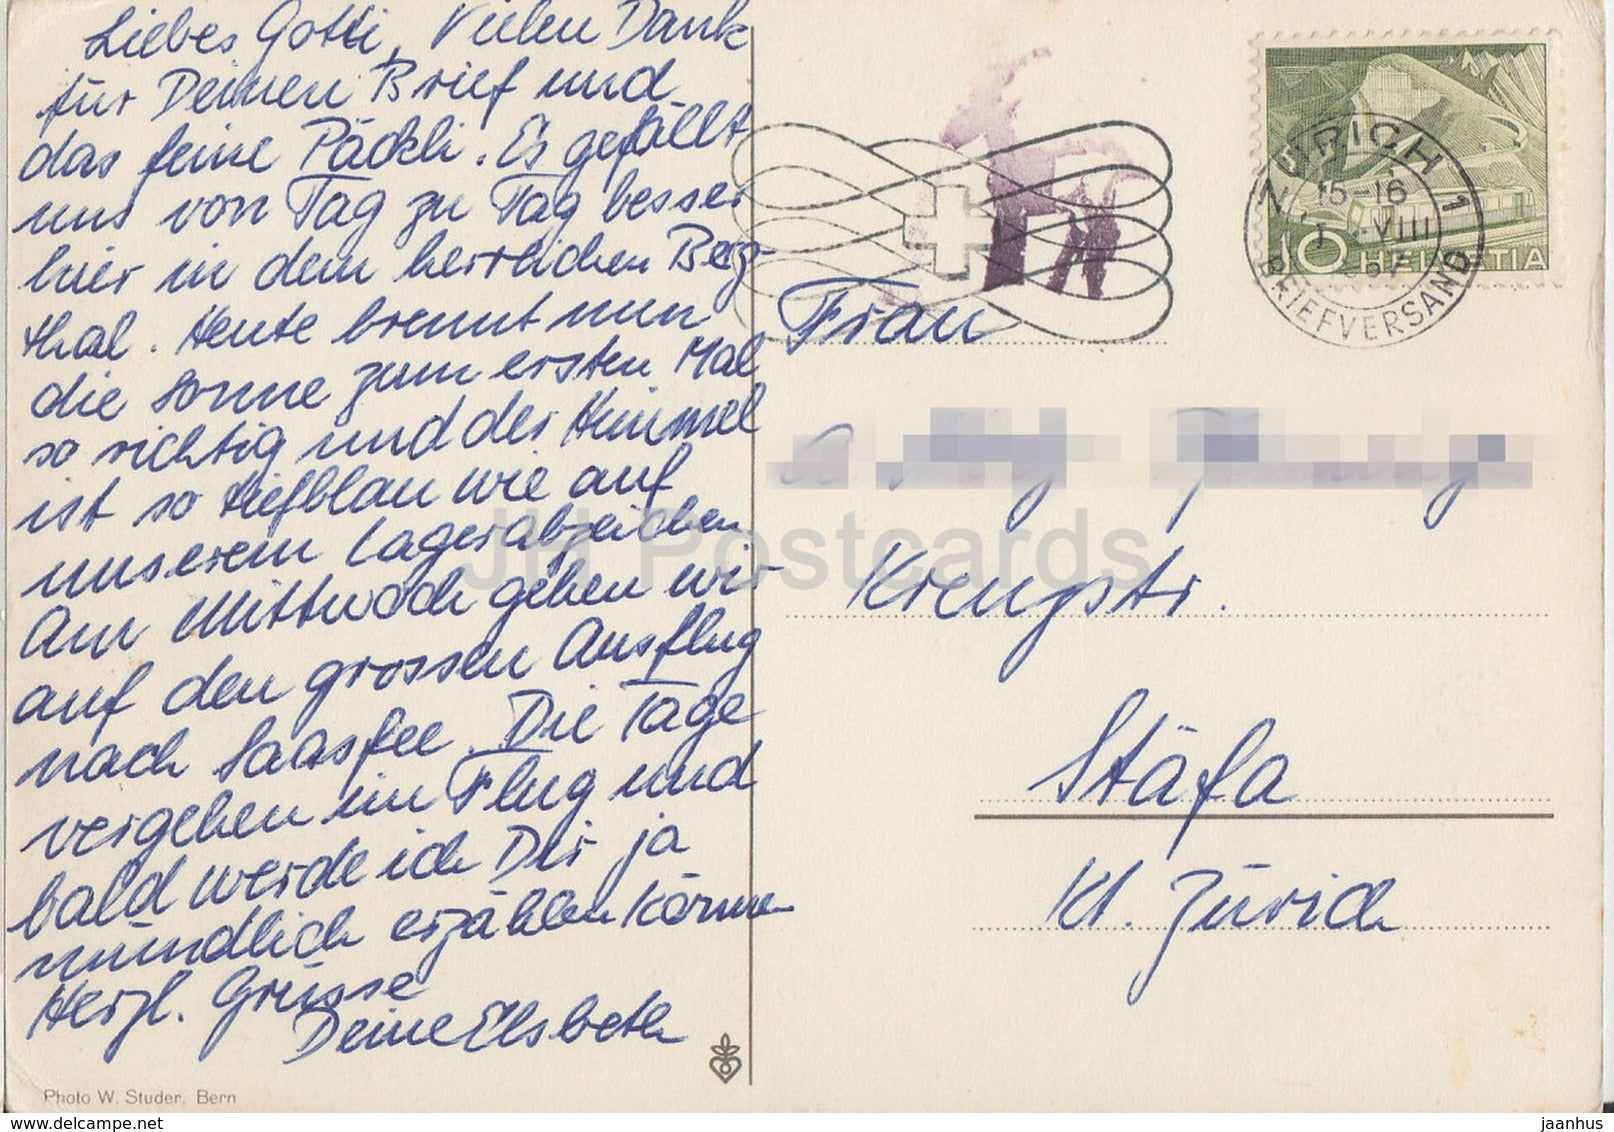 Liebes Gotti, Vielen Dank
für Deinen Brief und
das feine Päckli. Es gefällt
uns von Tag zu Tag besser
hier in dem herrlichen Berg-
thal. Heute brennt nun
die Sonne zum ersten Mal
so richtig und der Himmel
ist so tiefblau wie auf
unserem Lagerabzeichen
Am Mittwoch gehen wir
auf den grossen Ausflug
nach Saasfee. Die Tage
vergehen im Flug und
bald werde ich Dir ja
mündlich erzählen können
Herzl. Grüsse
Deine Elsbeth
Photo W. Studer, Bern
ZÜRICH 1
15-16
VIII
57
BRIEFVERSAND
10 HELVETIA
Frau
Kreugstr.
Stäfa
Kt. Zürich
JH Postcards
hippostcard.com
jaanhus